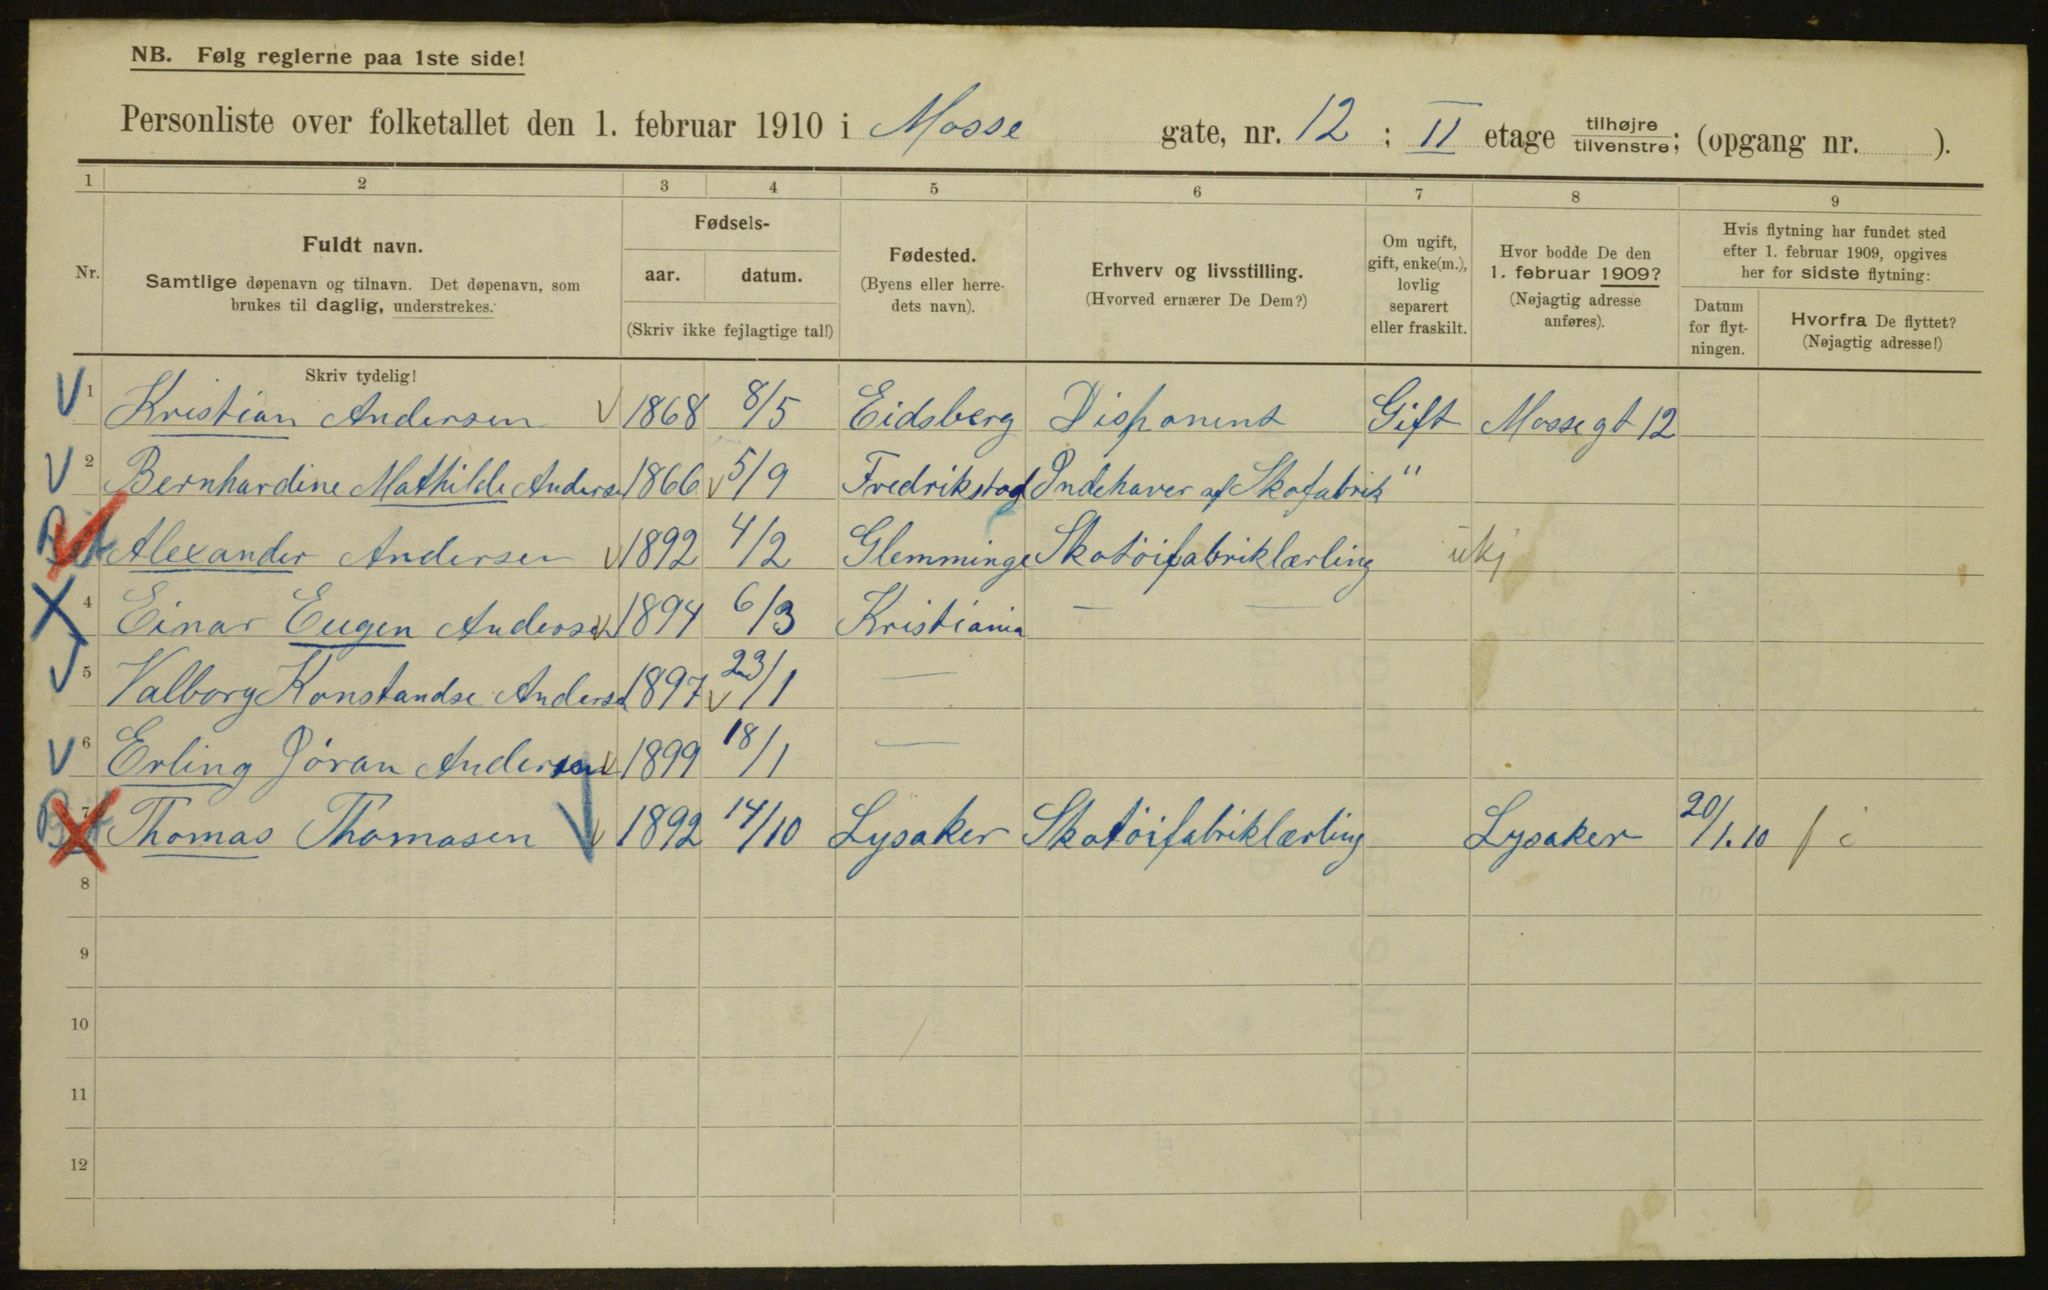 NB. Følg reglerne paa 1ste side!
Personliste over folketallet den 1. februar 1910 i Mosse gate, nr. 12 ; II etage tilhøjre tilvenstre; (opgang nr. ).
1 2 3 4 5 6 7 8 9
Nr.
Fuldt navn.
Samtlige døpenavn og tilnavn. Det døpenavn, som
brukes til daglig, understrekes.
Skriv tydelig!
Fødsels-
aar. datum.
(Skriv ikke fejlagtige tal!)
Fødested.
(Byens eller herre-
dets navn).
Erhverv og livsstilling.
(Hvorved ernærer De Dem?)
Om ugift,
gift, enke(m.),
lovlig
separert
eller fraskilt.
Hvor bodde De den
1. februar 1909?
(Nøjagtig adresse
anføres).
Hvis flytning har fundet sted
efter 1. februar 1909, opgives
her for sidste flytning:
Datum
for flyt-
ningen.
Hvorfra De flyttet?
(Nøjagtig adresse!)
1 Kristian Andersen 1868 8/5 Eidsberg Disponent Gift Mossegt 12
2 Bernhardine Mathilde Andersen 1866 5/9 Fredrikstad Indehaver af Skofabrik "
Alexander Andersen 1892 4/2 Glemminge Skotöifabriklærling ukj
4 Einar Eugen Andersen 1894 6/3 Kristiania — —
5 Valborg Konstandse Andersen 1897 23/1 —
6 Erling Jöran Andersen 1899 18/1 —
7 Thomas Thomasen 1892 14/10 Lysaker Skotöifabriklærling Lysaker 20/1.10
8
9
10
11
12